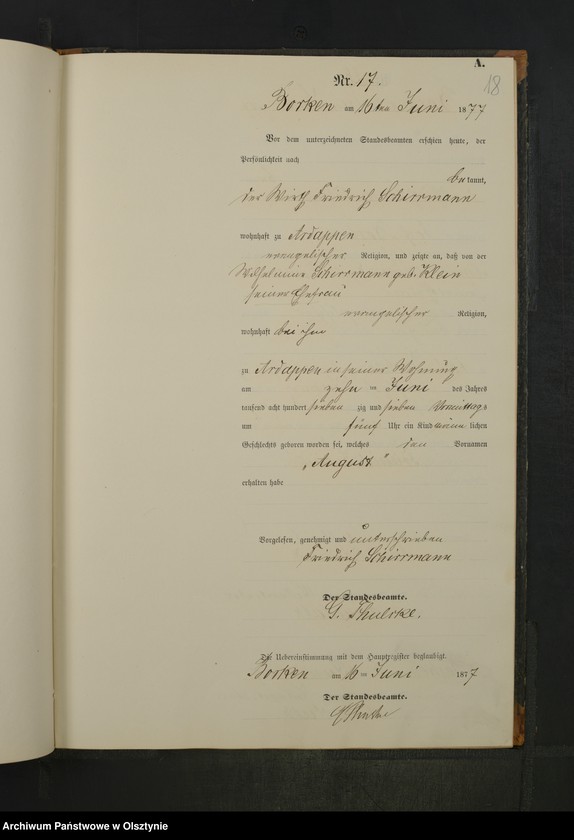 A.
18
Nr. 17.
Borken am 16ten Juni 1877
Vor dem unterzeichneten Standesbeamten erschien heute, der
Persönlichkeit nach
bekannt,
der Wirth Friedrich Schirrmann
wohnhaft zu Ardappen
evangelischer Religion, und zeigte an, daß von der
Wilhelmine Schirrmann geb. Klein
seiner Ehefrau
evangelischer Religion,
wohnhaft bei ihm
zu Ardappen in seiner Wohnung
am zehn ten Juni des Jahres
tausend acht hundert sieben zig und sieben Vormittags
um fünf Uhr ein Kind männlichen
Geschlechts geboren worden sei, welches den Vornamen
„August“
erhalten habe
Vorgelesen, genehmigt und unterschrieben
Friedrich Schirrmann
Der Standesbeamte.
Die Uebereinstimmung mit dem Hauptregister beglaubigt.
Borken am 16ten Juni 1877
Der Standesbeamte.
Archiwum Państwowe w Olsztynie